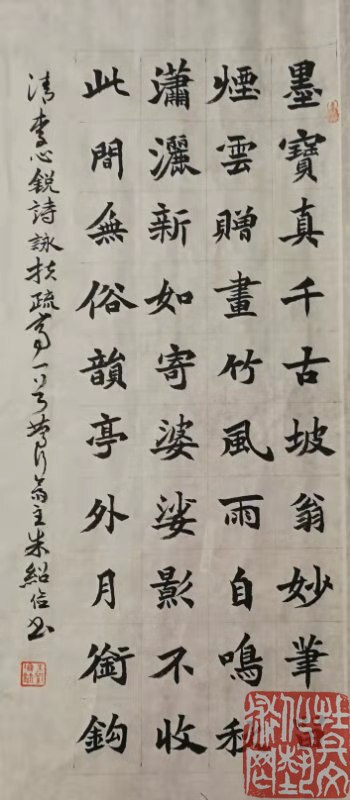 墨寶真千古坡翁妙筆
煙雲贈畫竹風雨自鳴秋
瀟灑新如寄婆娑影不收
此間無俗韻亭外月銜鈎
清李心銳詩詠扶疏亭一首 主朱紹信書